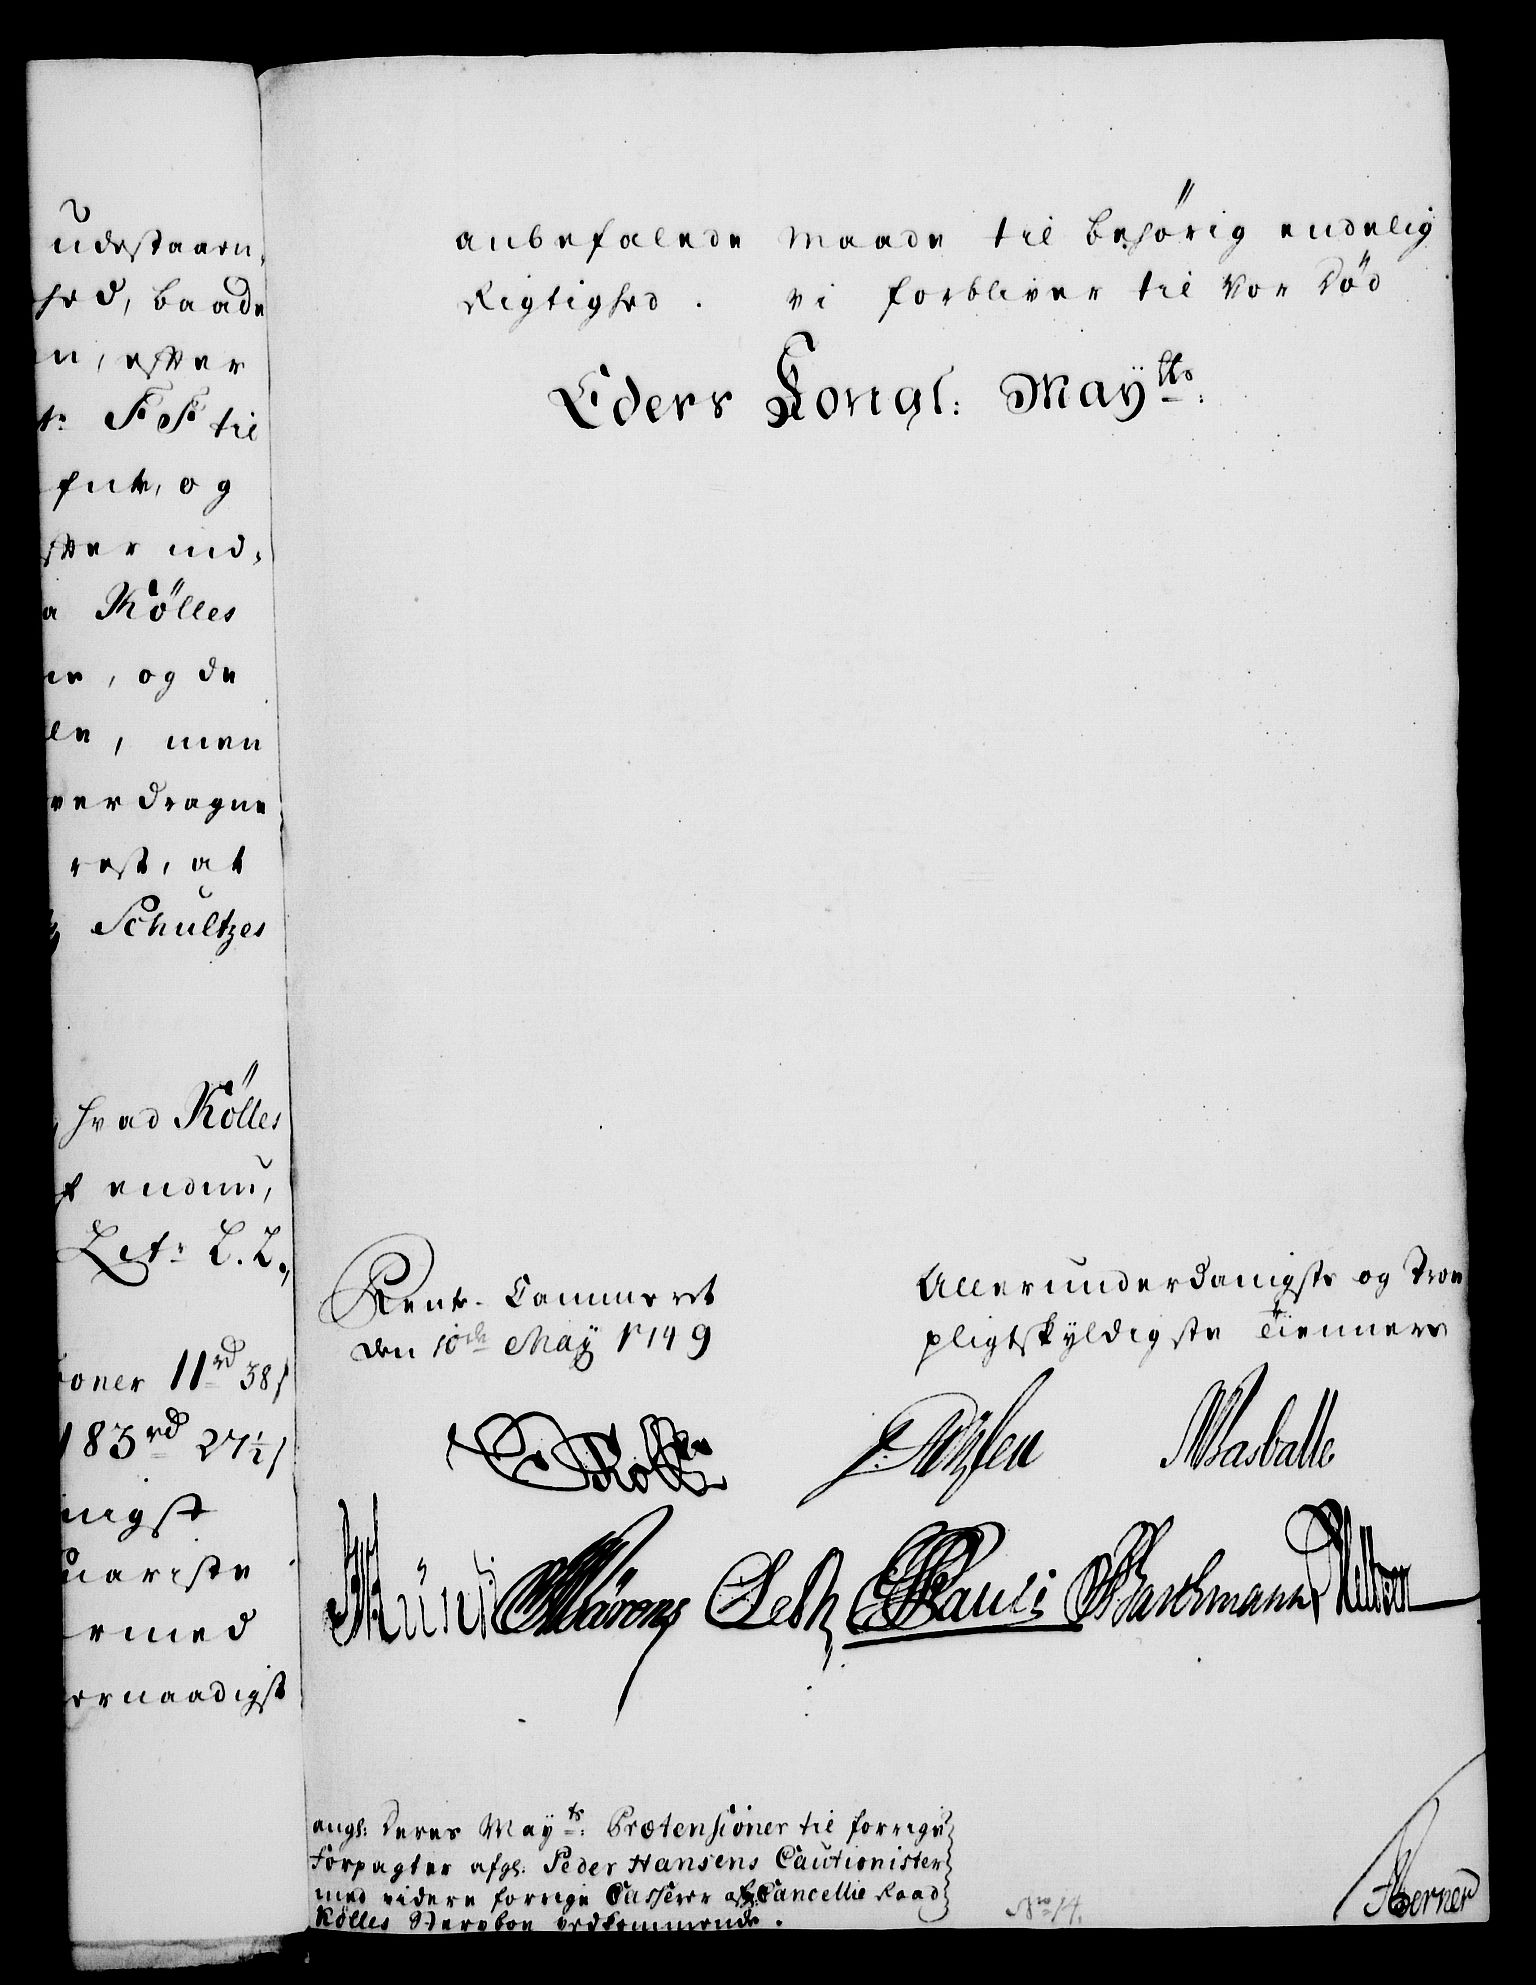 udestaaen,
hed, baade
n, efter
tr FF til
fnt, og
fter ind,
a Kölles
er, og de
lle, men
verdragne
rest, at
Schultzes
hvad Kölles
endnu,
Litr L.L.,
ioner 11rd 38s
183rd 27½s
nigst
uariste
rmed
ernaadigst
anbefalede Maade til behörig endelig
Rigtighed. Vi forbliver til vor Död
Eders Kongl: Mayts:
Rente-Cammeret
den 10de May 1749
Allerunderdanigste og Troe
pligtskyldigste Tiennere
Wasballe
Pauli Barchmann
angl: Deres Mayts: Prætensioner til forrige
Forpagter afgl: Peder Hansens Cautionister
med videre forrige Casserer afgl: Cancellie Raad
Kölles Sterboe vedkommende.
No 14.
Berner